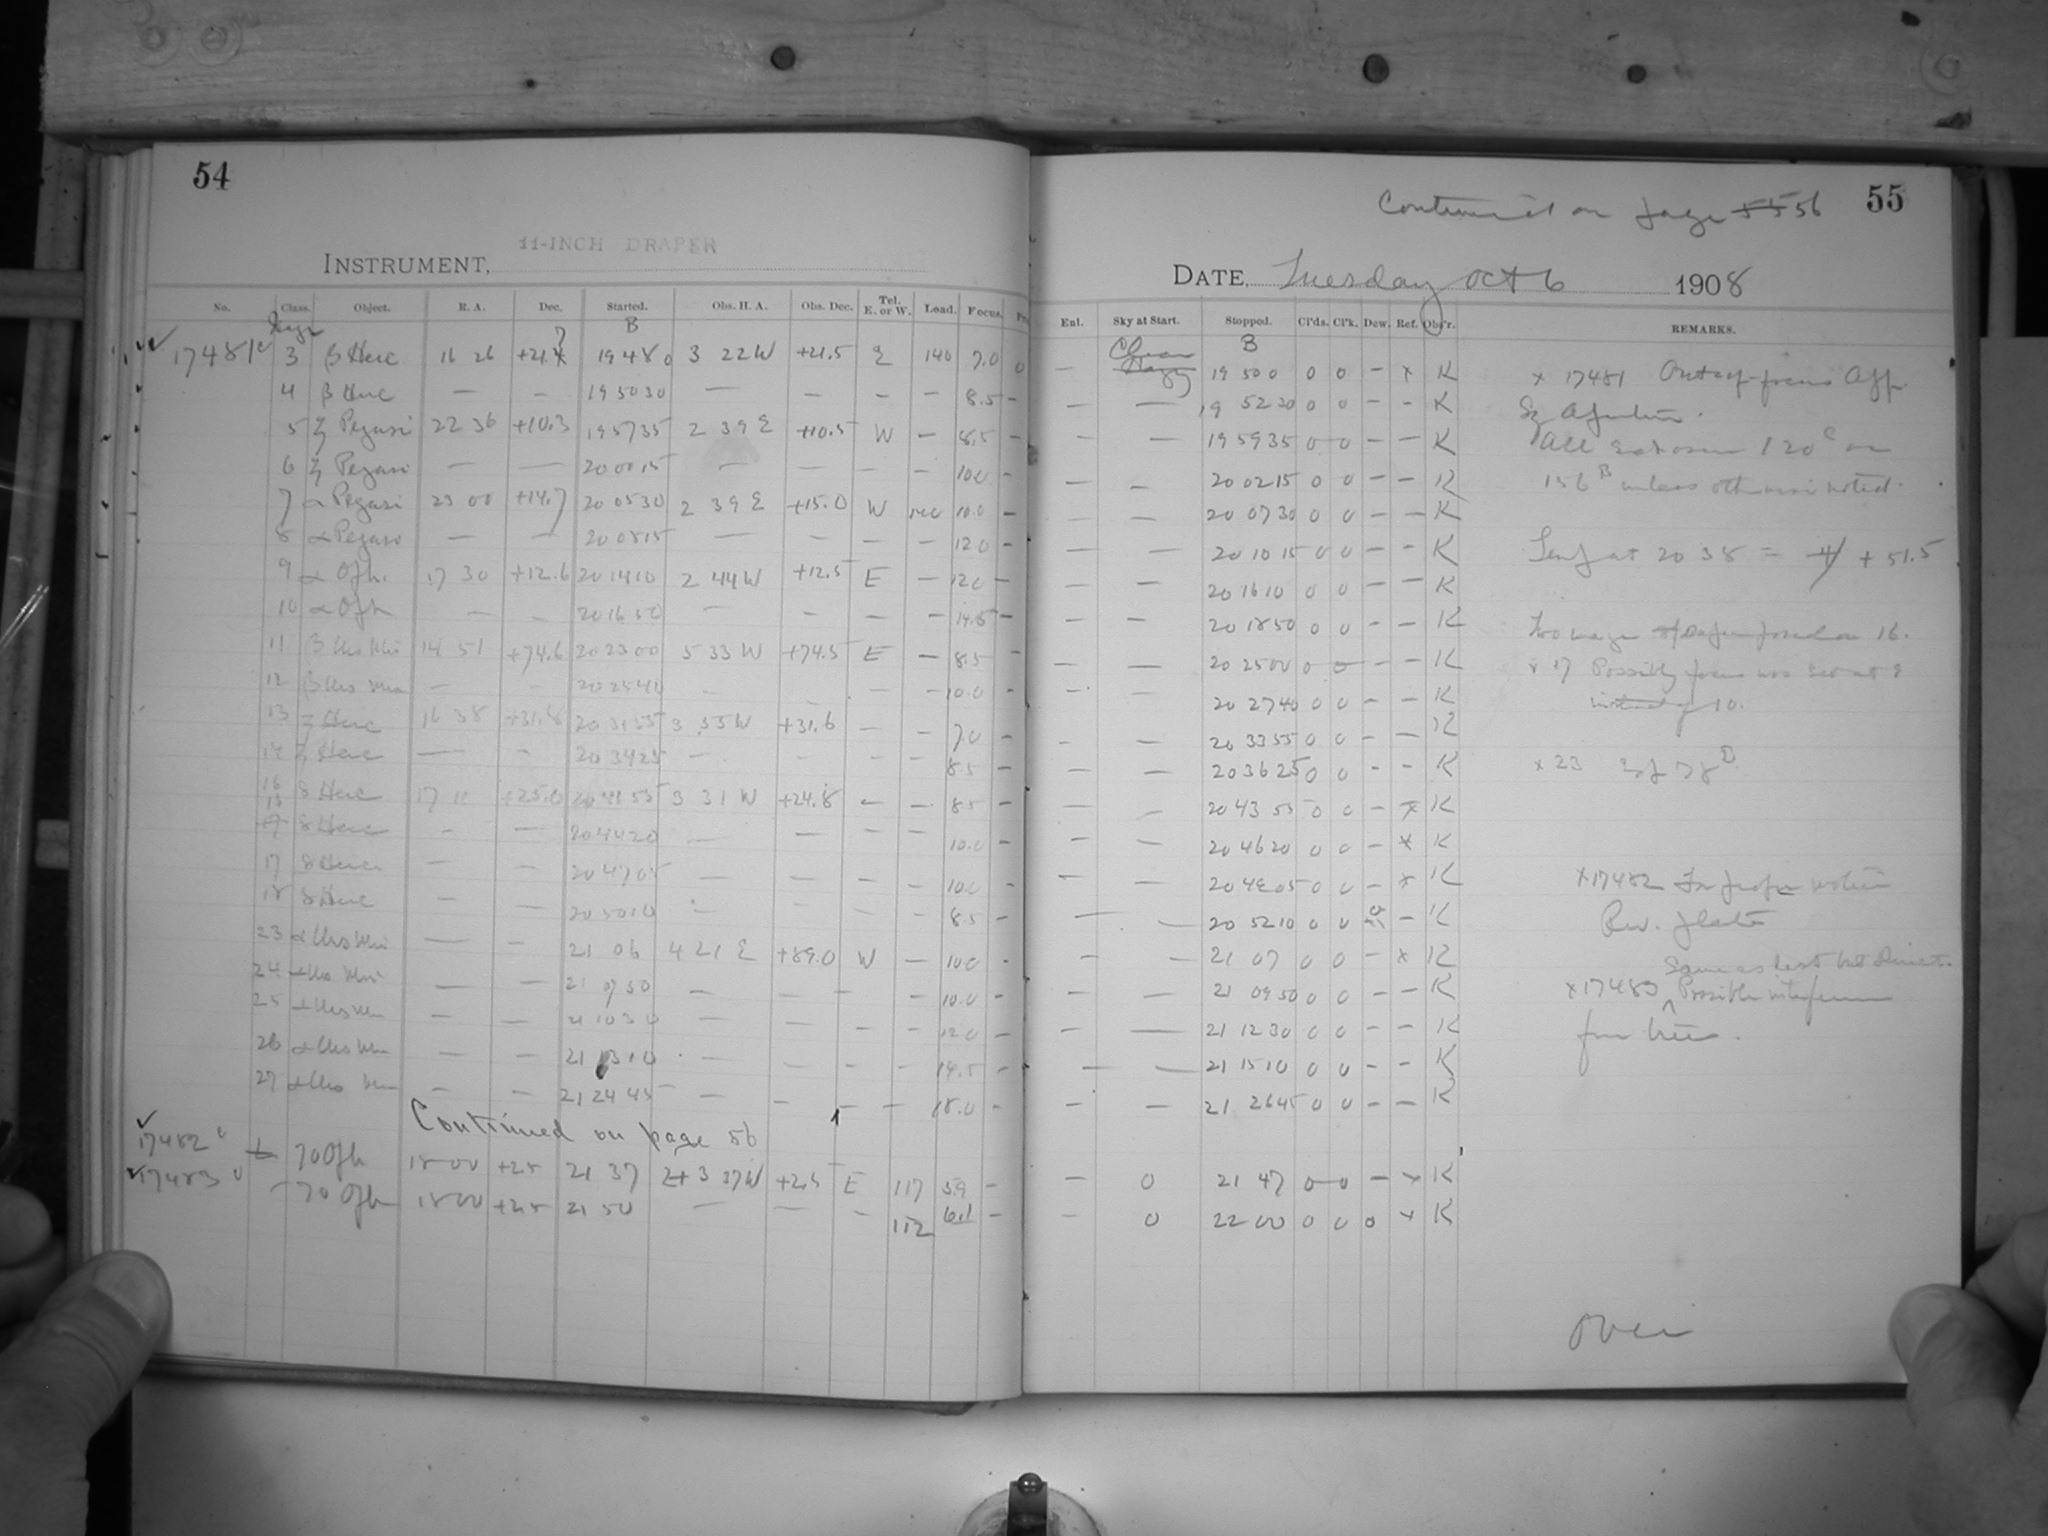 54
11-INCH DRAPER
INSTRUMENT,
No. Class. Object. R. A. Dec. Started. Obs. H. A. Obs. Dec. Tel. E. or W. Load. Focus.
B
17481 3 β Herc 16 26 +21.7 19 48 0 3 22 W +21.5 E 140 7.0
4 β Herc — — 19 50 30 — — — — 8.5 —
5 ζ Pegasi 22 36 +10.3 19 57 35 2 39 E +10.5 W — 8.5 —
6 ζ Pegasi — — 20 00 15 — — — — 10.0 —
7 α Pegasi 23 00 +14.7 20 05 30 2 39 E +15.0 W 140 10.0 —
8 α Pegasi — — 20 08 15 — — — — 12.0 —
9 α Oph. 17 30 +12.6 20 14 10 2 44 W +12.5 E — 12.0 —
10 α Oph — — 20 16 50 — — — — 14.5 —
11 β Urs Min 14 51 +74.6 20 23 00 5 33 W +74.5 E — 8.5 —
12 β Urs Min — — 20 25 40 — — — — 10.0 —
13 ζ Herc 16 38 +31.8 20 31 55 3 35 W +31.6 — — 7.0 —
14 ζ Herc — — 20 34 25 — — — — 8.5 —
15 δ Herc 17 11 +25.0 20 41 55 3 31 W +24.8 — — 8.5 —
16 δ Herc — — 20 44 20 — — — — 10.0 —
17 δ Herc — — 20 47 05 — — — — 10.0 —
18 δ Herc — — 20 50 10 — — — — 8.5 —
23 α Urs Min — — 21 06 4 21 E +89.0 W — 10.0 —
24 α Urs Min — — 21 07 50 — — — — 10.0 —
25 α Urs Min — — 21 10 30 — — — — 12.0 —
26 α Urs Min — — 21 13 10 — — — — 14.5 —
27 α Urs Min — — 21 24 45 — — — — 18.0 —
Continued on page 56
17482 L 70 Oph 18 00 +2.5 21 37 3 37 W +2.5 E 117 5.9 —
17483 — 70 Oph 18 00 +2.5 21 50 — — — 112 6.1 —
Continued on page 55 56
55
DATE, Tuesday Oct 6 1908
Enl. Sky at Start. Stopped. Cl'ds. Cl'k. Dew. Ref. Obs'r. REMARKS.
Clear B
— Hazy 19 50 0 0 0 — x K
— — 19 52 30 0 0 — — K
— — 19 59 35 0 0 — — K
— — 20 02 15 0 0 — — K
— — 20 07 30 0 0 — — K
— — 20 10 15 0 0 — — K
— — 20 16 10 0 0 — — K
— — 20 18 50 0 0 — — K
— — 20 25 00 0 0 — — K
— — 20 27 40 0 0 — — K
— — 20 33 55 0 0 — — K
— — 20 36 25 0 0 — — K
— — 20 43 55 0 0 — x K
— — 20 46 20 0 0 — x K
— — 20 49 05 0 0 — x K
— — 20 52 10 0 0 — K
— — 21 07 0 0 — x K
— — 21 09 50 0 0 — — K
— — 21 12 30 0 0 — — K
— — 21 15 10 0 0 — — K
— — 21 26 45 0 0 — — K
— 0 21 47 0 0 — x K
— 0 22 00 0 0 0 x K
x 17481 Out of focus App.
Sq Aperture.
All exposures 120s or
156 B unless otherwise noted.
Temp at 20 38 = + 51.5
Two images on 16.
x 17 Possibly focus was set at 8
instead of 10.
x 23 Exp 78 B
x17482 For proper motion
Rev. plate
Same as last but Direct.
x17483 Possible interference
from trees.
over